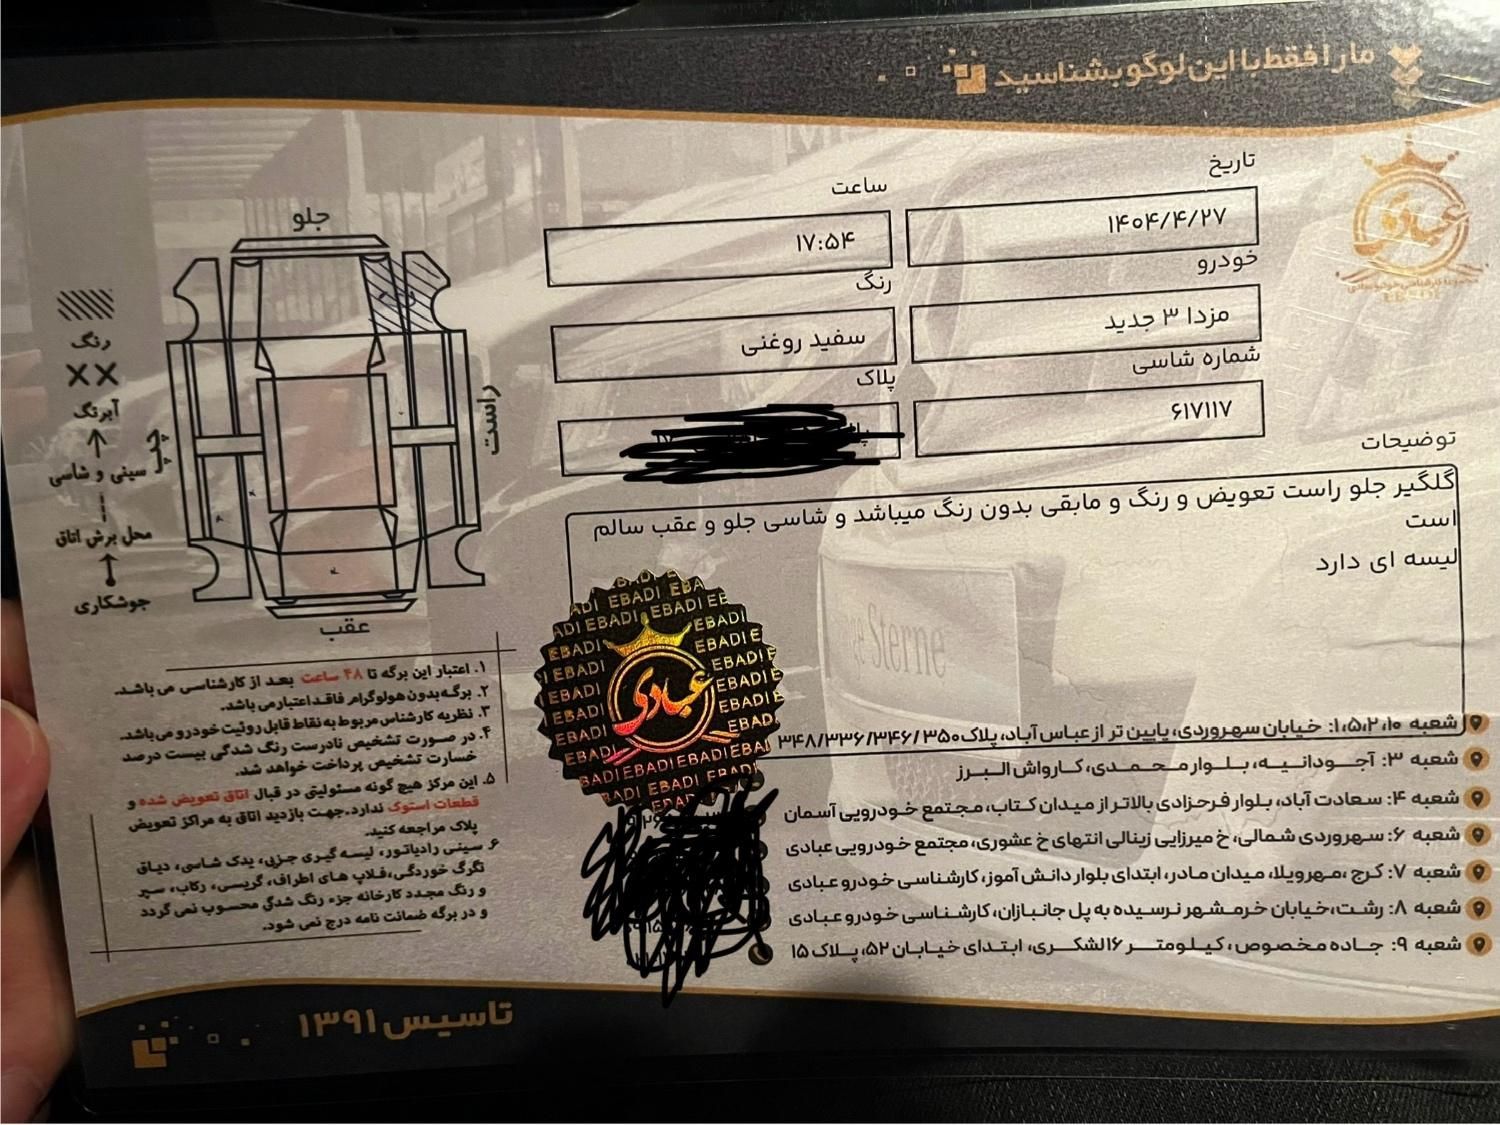 ما را فقط با این لوگو بشناسید
عبادی
مجموعه کارشناسی خودرو عبادی
EBADI
تاریخ
۱۴۰۴/۴/۲۷
ساعت
۱۷:۵۴
خودرو
مزدا ۳ جدید
رنگ
سفید روغنی
شماره شاسی
۶۱۷۱۱۷
پلاک
توضیحات
گلگیر جلو راست تعویض و رنگ و مابقی بدون رنگ میباشد و شاسی جلو و عقب سالم
است
لیسه ای دارد
جلو
راست
چپ
عقب
رنگ
××
آبرنگ
سینی و شاسی
محل برش اتاق
جوشکاری
۱. اعتبار این برگه تا ۴۸ ساعت بعد از کارشناسی می باشد.
۲. برگه بدون هولوگرام فاقد اعتبار می باشد.
۳. نظریه کارشناس مربوط به نقاط قابل روئیت خودرو می باشد.
۴. در صورت تشخیص نادرست رنگ شدگی بیست درصد
خسارت تشخیص پرداخت خواهد شد.
۵. این مرکز هیچ گونه مسئولیتی در قبال اتاق تعویض شده و
قطعات استوک ندارد.جهت بازدید اتاق به مراکز تعویض
پلاک مراجعه کنید.
۶. سینی رادیاتور، لیسه گیری جزیی، یدک شاسی، دیاق
تگرگ خوردگی،فلاپ های اطراف، گریسی، رکاب، سپر
و رنگ مجدد کارخانه جزء رنگ شدگی محسوب نمی گردد
و در برگه ضمانت نامه درج نمی شود.
EBADI
عبادی
Sterne
شعبه ۱،۵،۲،۱۰: خیابان سهروردی، پایین تر از عباس آباد، پلاک۳۴۸/۳۳۶/۳۴۶/۳۵۰
شعبه ۳: آجودانیه، بلوار محمدی، کارواش البرز
شعبه ۴: سعادت آباد، بلوار فرحزادی بالاتر از میدان کتاب، مجتمع خودرویی آسمان
شعبه ۶: سهروردی شمالی، خ میرزایی زینالی انتهای خ عشوری، مجتمع خودرویی عبادی
شعبه ۷: کرج، مهرویلا، میدان مادر، ابتدای بلوار دانش آموز، کارشناسی خودرو عبادی
شعبه ۸: رشت، خیابان خرمشهر نرسیده به پل جانبازان، کارشناسی خودرو عبادی
شعبه ۹: جاده مخصوص، کیلومتر ۱۶ لشکری، ابتدای خیابان ۵۲، پلاک ۱۵
تاسیس ۱۳۹۱